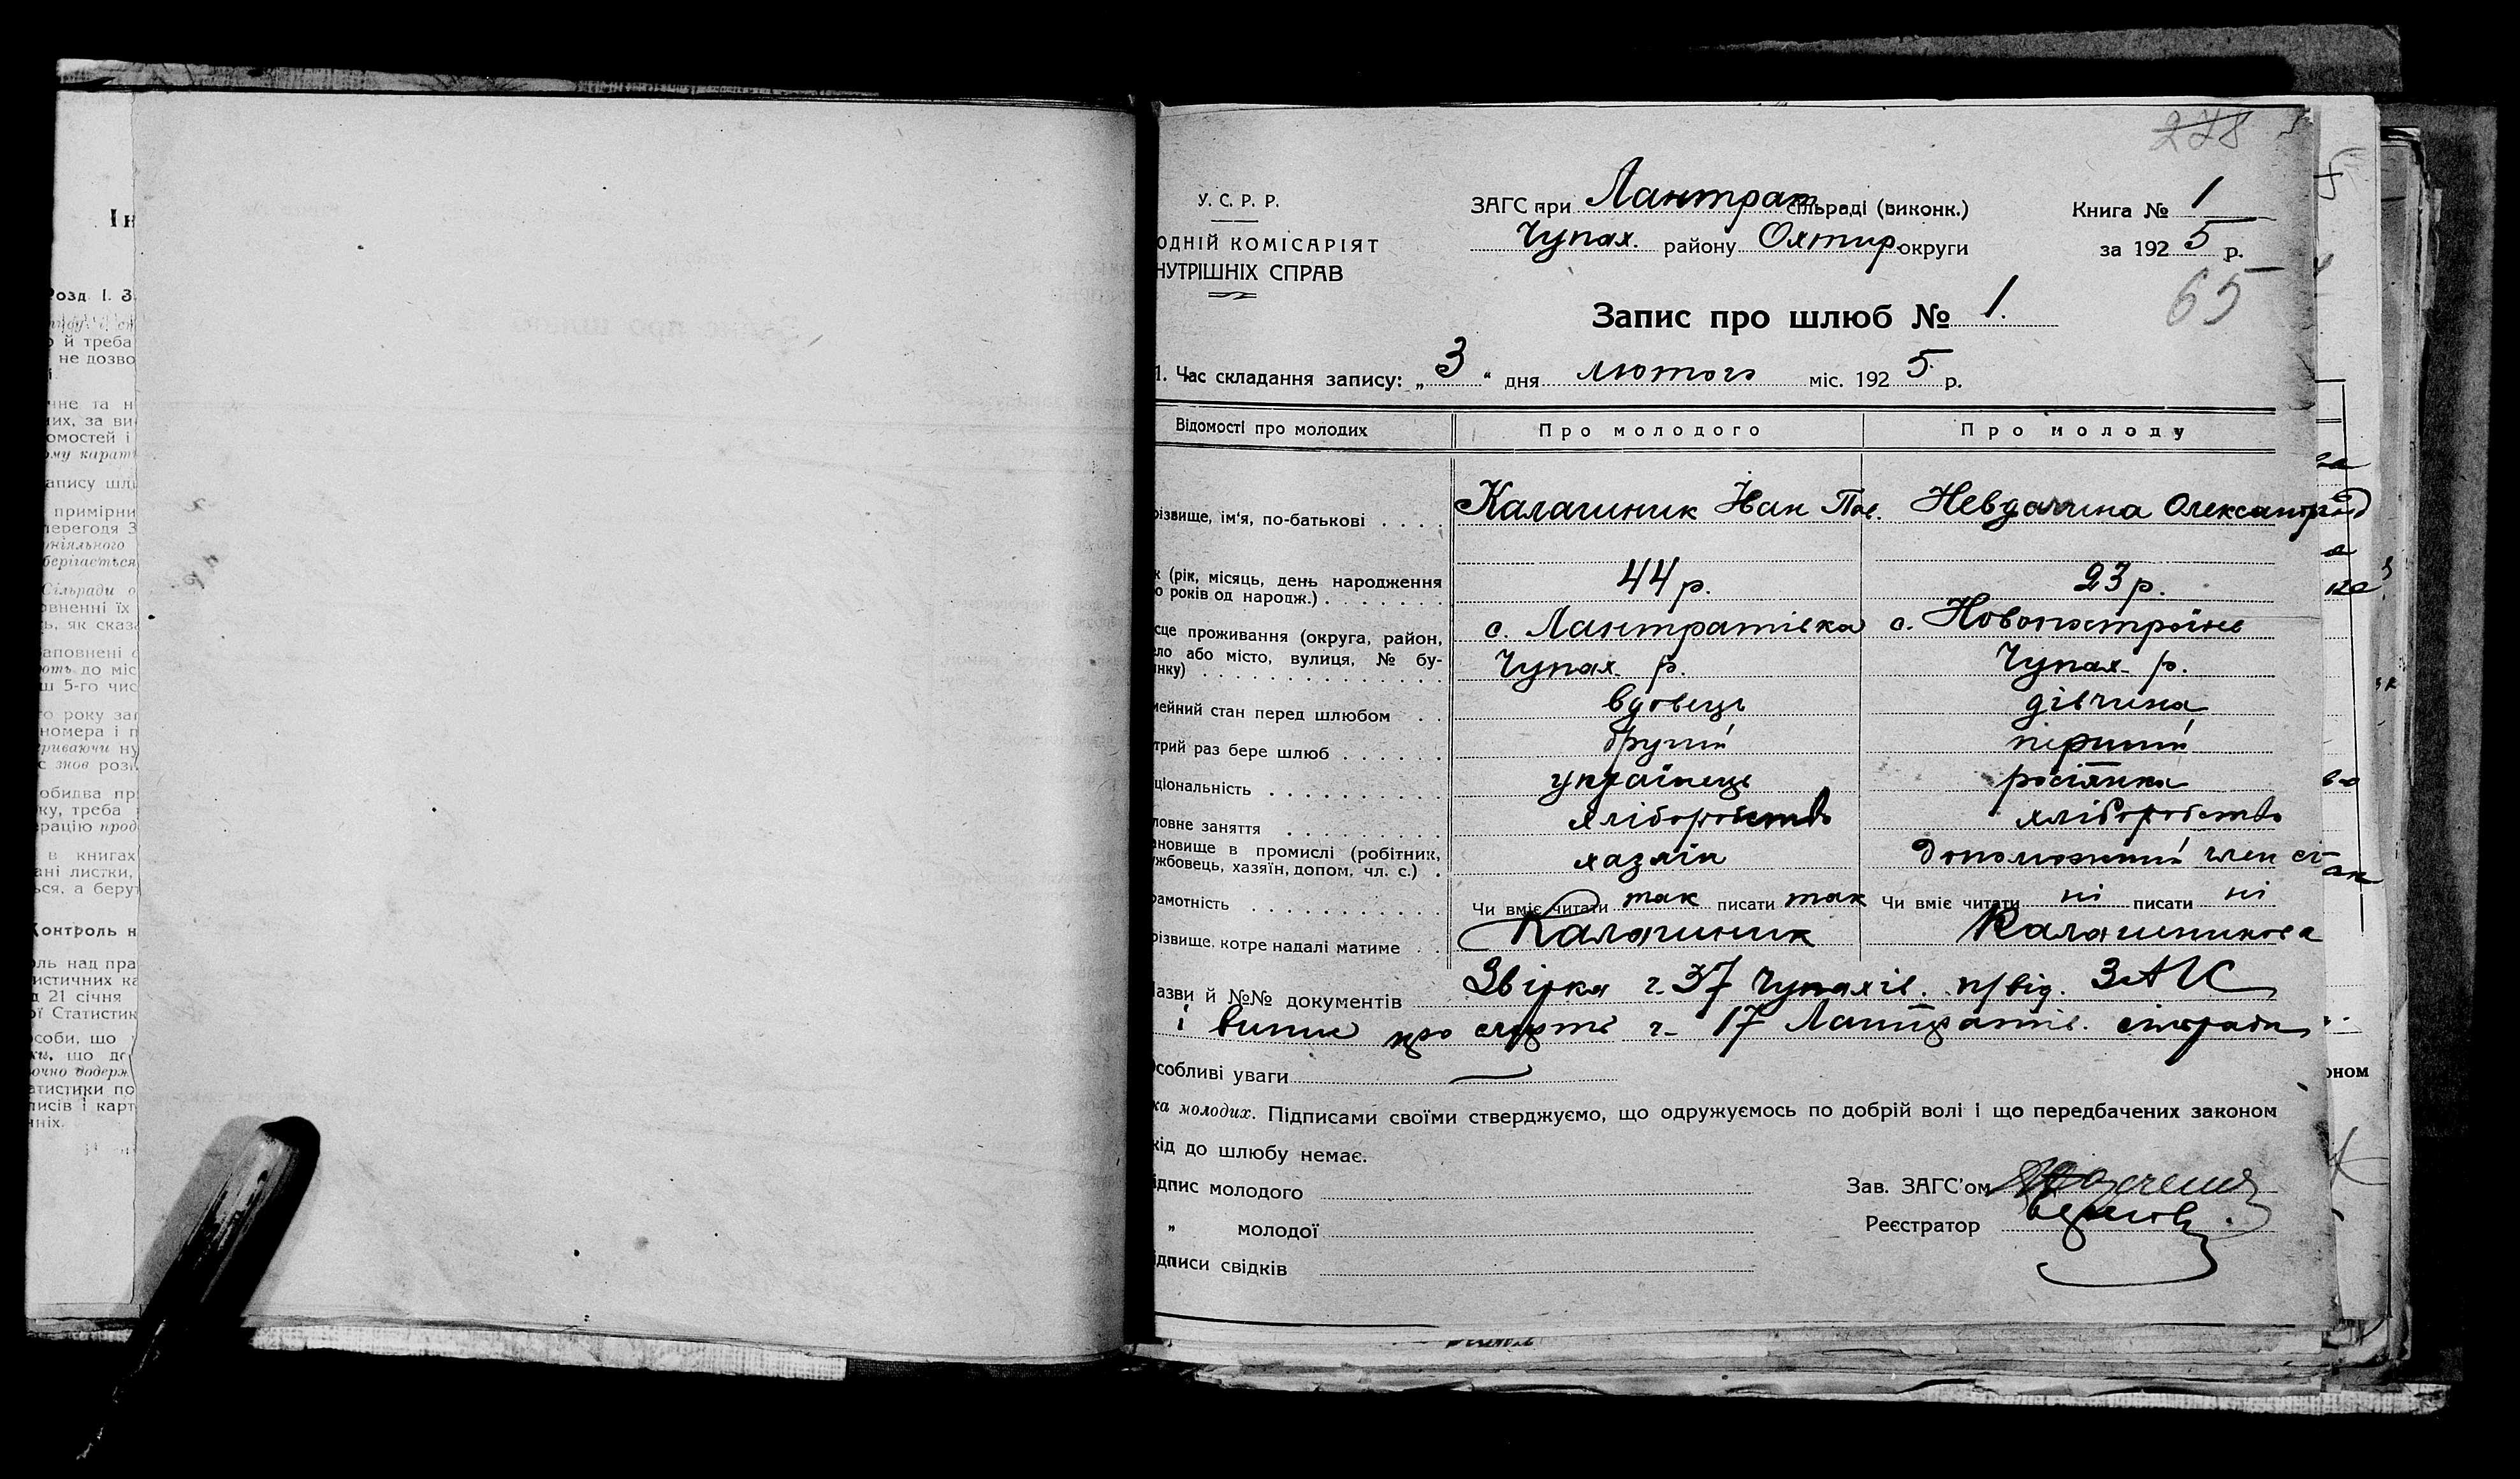 Ін
озд. І. З
й треба
не дозво
их, за ви
омостей і
апису шл
примірни
ерегодя З
Сільради о
ь, як сказа
аповнені
до міс
ш 5-го чис
го року заг
номера і п
знов розп
обидва пр
ку, треба
ерацію прод
в книгах
ані листки,
ься, а берут
Контроль н
ль над пра
истичних ка
21 січня
ої Статистик
соби, що
атистики по
писів і карт
278
У. С. Р. Р.
ОДНІЙ КОМІСАРІЯТ
НУТРІШНІХ СПРАВ
ЗАГС при Лантрат сільраді (виконк.)
Чупах. району Охтир. округи
Книга № 1
за 1925 р.
65
Запис про шлюб № 1.
1. Час складання запису: „3“ дня лютого міс. 1925 р.
Відомості про молодих Про молодого Про молоду
різвище, ім'я, по-батькові . . . . Калашник Іван Невдачина Олександ
к (рік, місяць, день народження
о років од народж.) . . . . . . . 44 р. 23 р.
сце проживання (округа, район, с. Лантратівка с. Новопостроїне
ло або місто, вулиця, № бу-
нку) . . . . . . . . . . . . . . Чупах. р. Чупах. р.
мейний стан перед шлюбом . . вдовець дівчина
трий раз бере шлюб . . . . . . другий перший
ціональність . . . . . . . . . . українець росіянка
ловне заняття . . . . . . . . . хліборобство хліборобство
ановище в промислі (робітник,
жбовець, хазяїн, допом. чл. с.) . хазяїн допоможний член сі
рамотність . . . . . . . . . . . Чи вміє читати так писати так Чи вміє читати ні писати ні
різвище, котре надалі матиме . . Калашник Калашникова
азви й №№ документів Звірка ч. 37 Чупахів. п/від. ЗАГС
і випис про смерть ч. 17 Лантратів. сільради
собливі уваги
ка молодих. Підписами своїми стверджуємо, що одружуємось по добрій волі і що передбачених законом
кід до шлюбу немає.
ідпис молодого
Зав. ЗАГС'ом
„ молодої
Реєстратор
ідписи свідків
оном